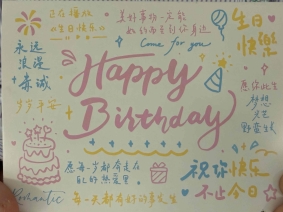 正在播放
《生日快乐》
美好事物一定能
如约而至到你身边
Come for you
生日
快樂
永远
浪漫
赤诚
岁岁平安
Happy
Birthday
愿你此生
梦想
光芒
野蛮生长
愿每一岁都奔走在
自己的热爱里
Romantic
每一天都有好的事发生
祝你快乐
不止今日